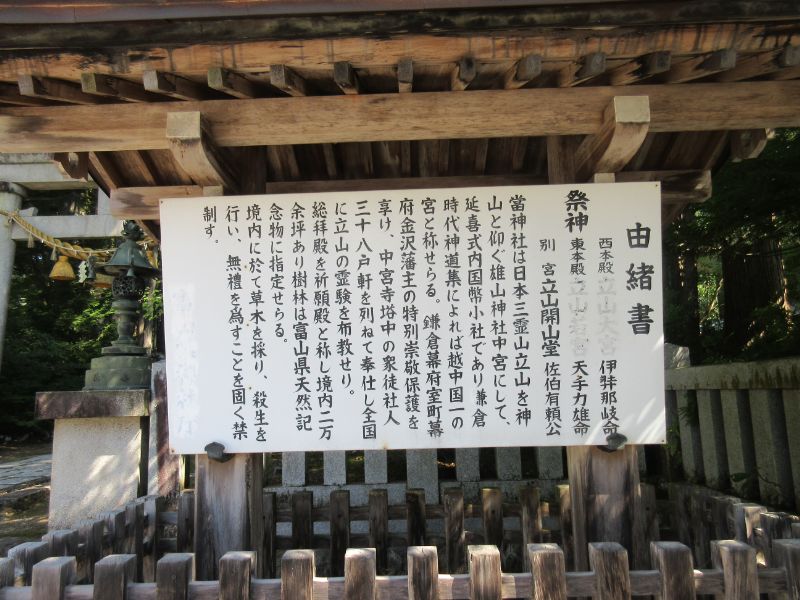 由緒書
西本殿 立山大宮 伊弉那岐命
祭神 東本殿 立山若宮 天手力雄命
別 宮 立山開山堂 佐伯有頼公
當神社は日本三霊山立山を神
山と仰ぐ雄山神社中宮にして、
延喜式内国幣小社であり鎌倉
時代神道集によれば越中国一の
宮と称せらる。鎌倉幕府室町幕
府金沢藩主の特別崇敬保護を
享け、中宮寺塔中の衆徒社人
三十八戸軒を列ねて奉仕し全国
に立山の霊験を布教せり。
総拝殿を祈願殿と称し境内二万
余坪あり樹林は富山県天然記
念物に指定せらる。
境内に於て草木を採り、殺生を
行い、無禮を爲すことを固く禁
制す。